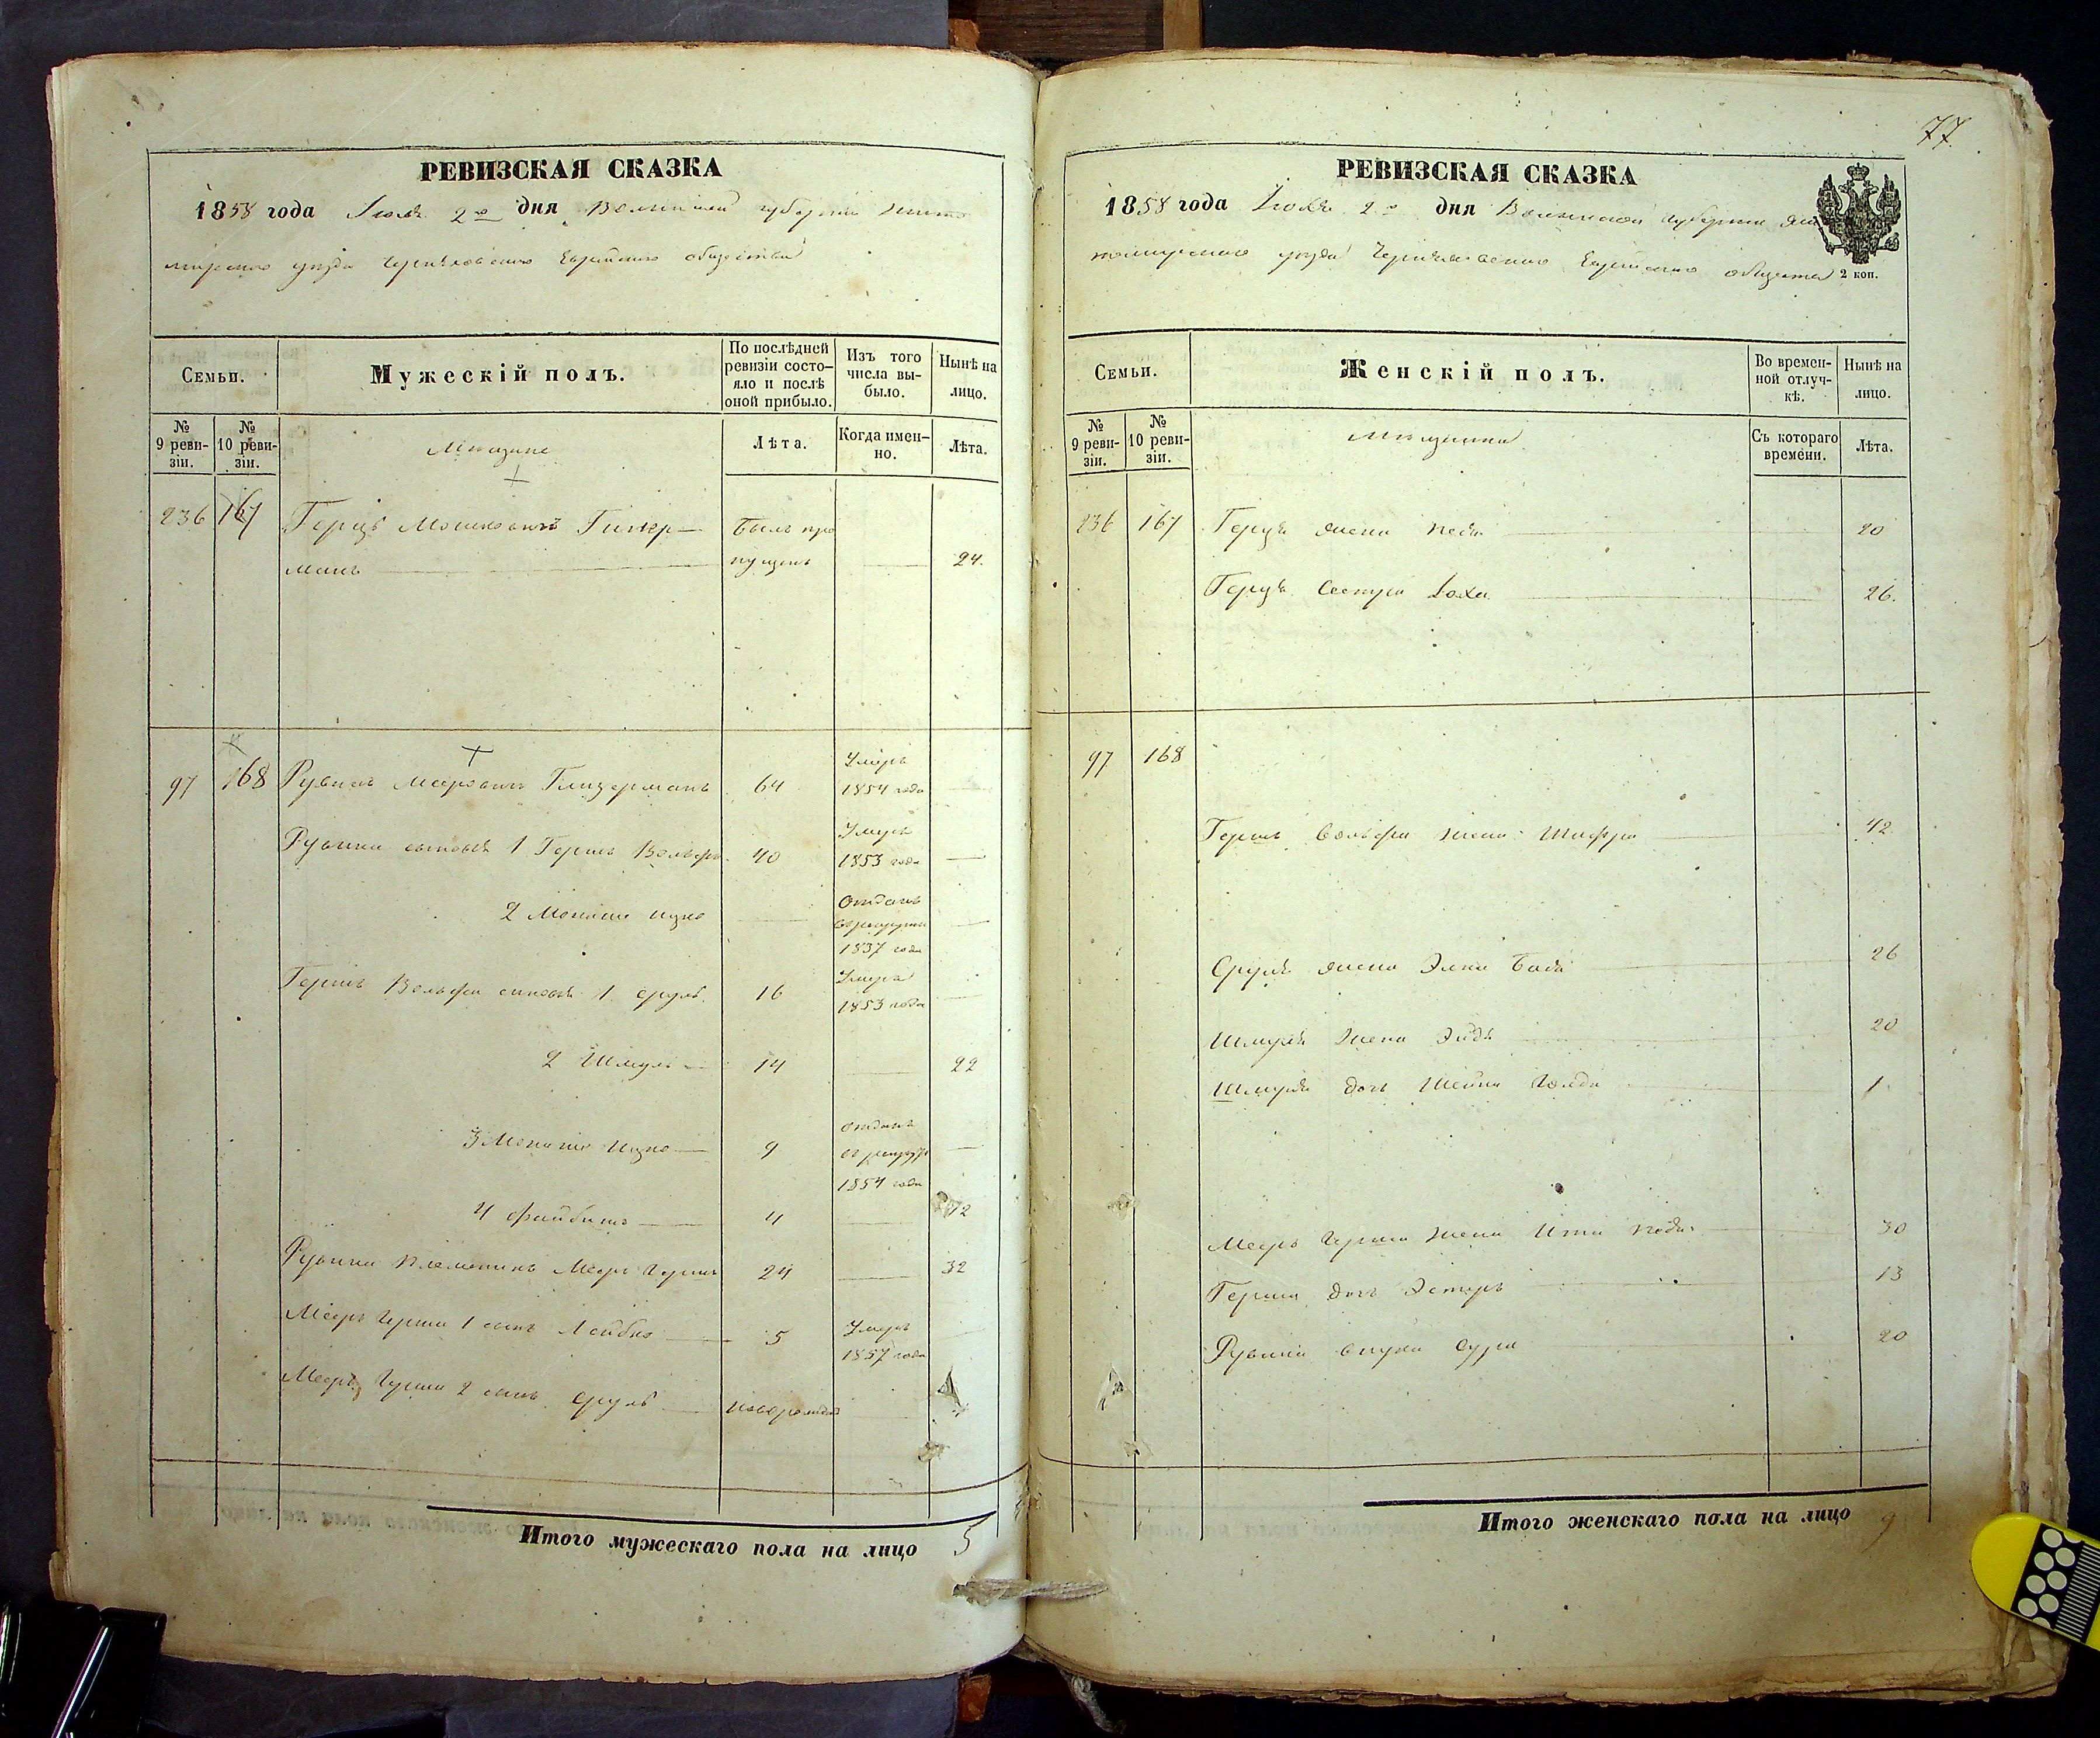 РЕВИЗСКАЯ СКАЗКА
1858 года Июля 2го дня Волынской губернии Жито
мирского уезда Черняховского Еврейского общества
Семьи.
Мужескій полъ.
По послѣдней ревизіи состояло и послѣ оной прибыло.
Изъ того числа выбыло.
Нынѣ на лицо.
№ 9 ревизіи.
№ 10 ревизіи.
Мещане
Лѣта.
Когда именно.
Лѣта.
236 167 Герцъ Мошковичъ Гитер— былъ про
манъ пущенъ 24.
97 168 Рувинъ Меерович Глизерманъ 64 Умеръ 1854 года
Рувина сыновья 1 Гершъ Вольфъ 40 Умеръ 1853 года
2 Монаши Ицко отданъ в рекруты 1837 года
Гершъ Вольфа сыновья 1 Сруль 16 Умеръ 1853 года
2 Шмуль 14 22
3 Монаши Ицко 9 отданъ в рекруты 1854 года
4 Файбишъ 4 12
Рувина племянникъ Меер Гершъ 24 32
Меера Герша 1 сынъ Лейбко 5 Умеръ 1857 года
Меера Герша 2 сынъ Сруль новорожден
Итого мужескаго пола на лицо 5
77
РЕВИЗСКАЯ СКАЗКА
1858 года Июля 2го дня Волынской губернии Жи
томирского уезда Черняховского Еврейского общества
2 коп.
Семьи.
Женскій полъ.
Во временной отлучкѣ.
Нынѣ на лицо.
№ 9 ревизіи.
№ 10 ревизіи.
Мещанки
Съ котораго времени.
Лѣта.
236 167 Герца жена Песя 20
Герца сестра Хаха 26.
97 168
Герша Вольфа жена Шифра 42
Сруля жена Элка Бася 26
Шмуля жена Эйдя 20
Шмуля дочь Шейна Голда 1
Меера Герша жена Ита Песя 30
Герша дочь Эстеръ 13
Рувина внука Сура 20
Итого женскаго пола на лицо 9